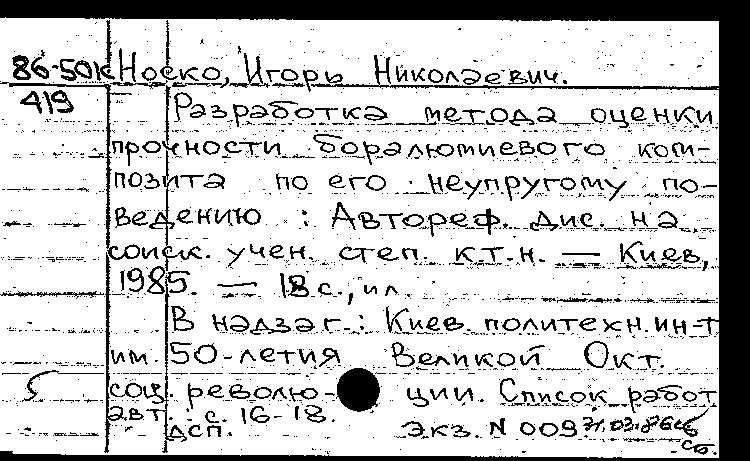 86-50к Носко, Игорь Николаевич.
419 Разработка метода оценки
прочности боралюмиевого ком-
позита по его неупругому по-
ведению : Автореф. дис. на
соиск. учен. степ. к.т.н. — Киев,
1985. — 18 с., ил.
В надзаг.: Киев. политехн. ин-т
им. 50-летия Великой Окт.
соц. револю- ции. Список работ
авт.: с. 16-18.
дсп. Экз. N 009